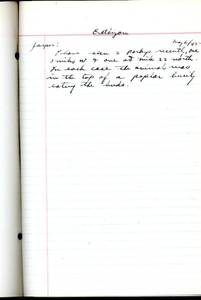 Edson
May 6/45
Jasper:
I have seen 2 porkys recently, one
3 miles W & one at mile 22 north.
In each case the animal was
in the top of a poplar busily
eating the buds.